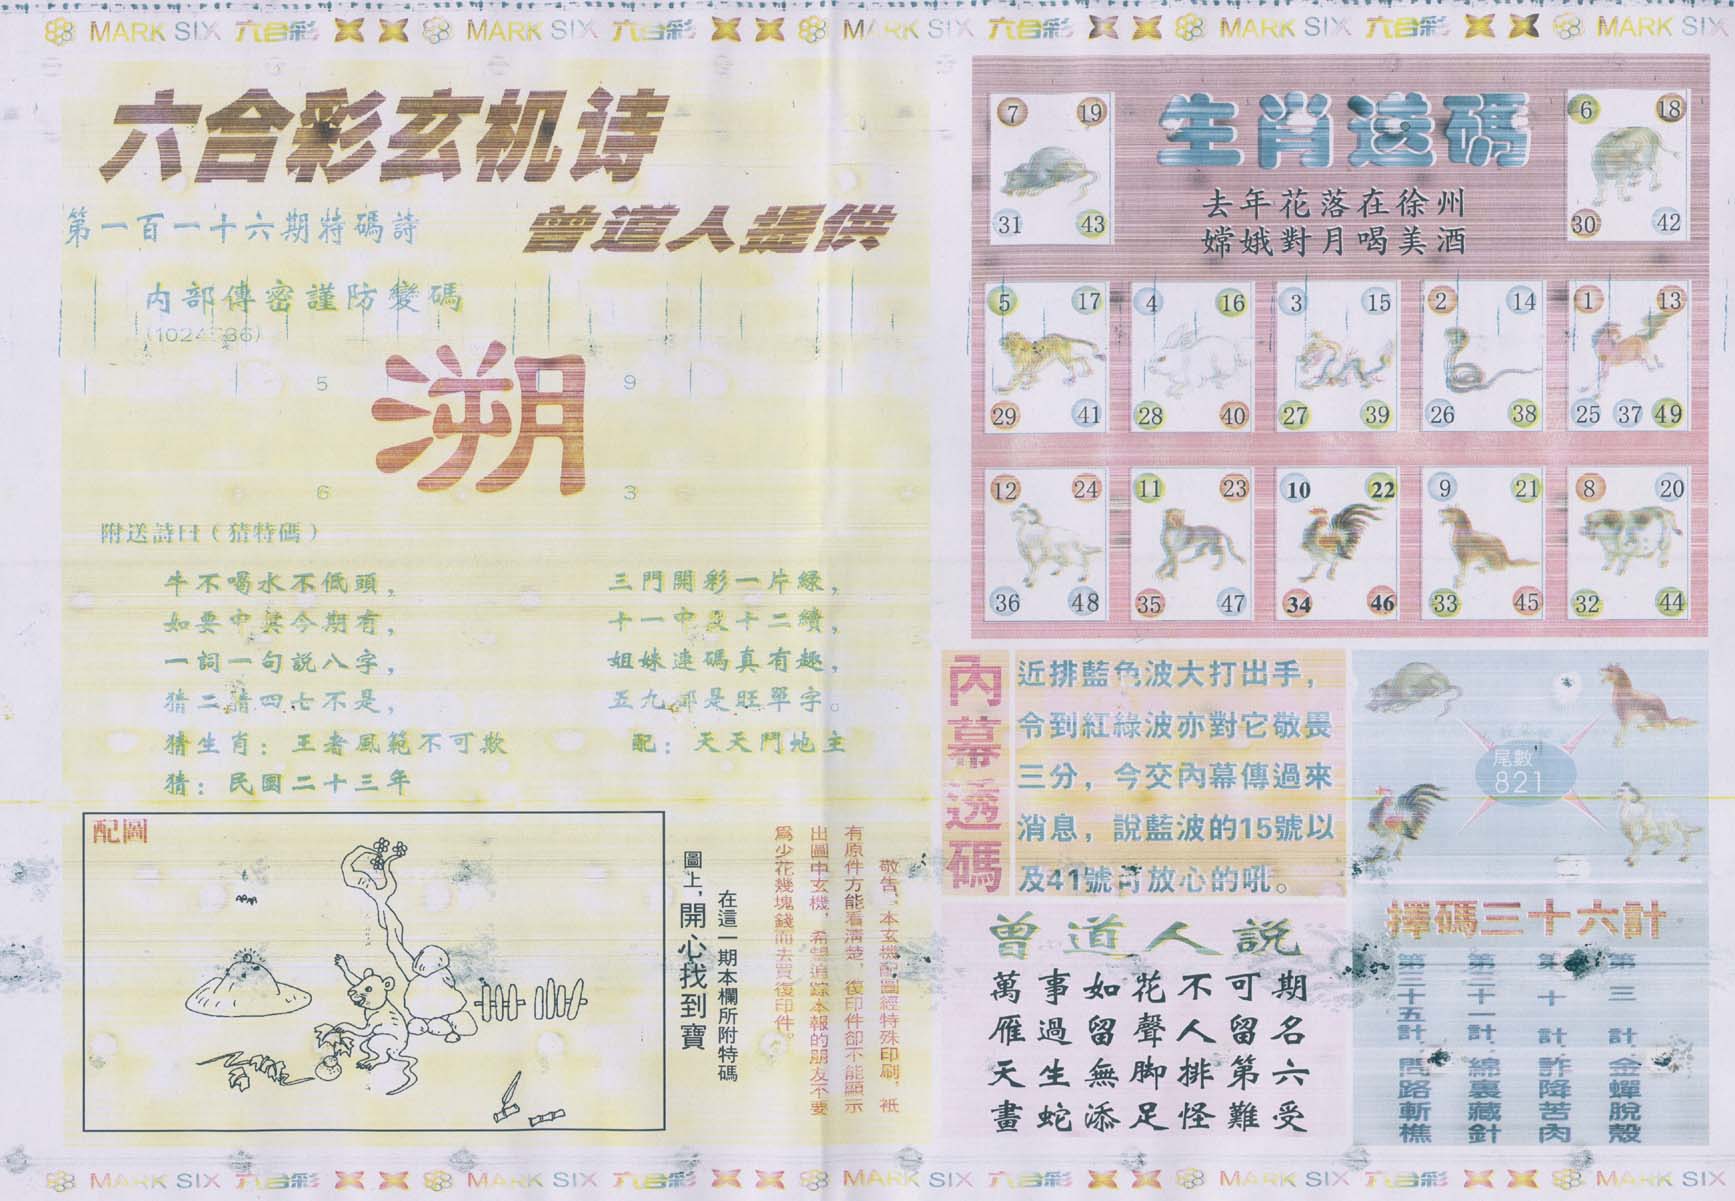 MARK SIX 六合彩 MARK SIX 六合彩 MARK SIX 六合彩 MARK SIX 六合彩 MARK SIX
六合彩玄机诗
第一百一十六期特碼詩
曾道人提供
内部傳密謹防變碼
溯
5 9
6 3
附送詩曰（猜特碼）
牛不喝水不低頭，
如要中其今期有，
一詞一句説八字，
猜二猜四七不是，
三門開彩一片緑，
十一中及十二續，
姐妹連碼真有趣，
五九都是旺單字。
猜生肖：王者風範不可欺
配：天天鬥地主
猜：民國二十三年
配圖
在這一期本欄所附特碼
圖上，開心找到寶
敬告，本玄機配圖經特殊印刷，衹
有原件方能看清楚，復印件卻不能顯示
出圖中玄機，希望追踪本報的朋友不要
爲少花幾塊錢而去買復印件。
生肖送碼
去年花落在徐州
嫦娥對月喝美酒
7 19
31 43
6 18
30 42
5 17
29 41
4 16
28 40
3 15
27 39
2 14
26 38
1 13
25 37 49
12 24
36 48
11 23
35 47
10 22
34 46
9 21
33 45
8 20
32 44
內幕透碼
近排藍色波大打出手，
令到紅綠波亦對它敬畏
三分，今交內幕傳過來
消息，說藍波的15號以
及41號可放心的吼。
尾數
821
曾道人説
萬事如花不可期
雁過留聲人留名
天生無脚排第六
畫蛇添足怪難受
擇碼三十六計
第三計.金蟬脫殼
第十計.詐降苦肉
第三十一計.綿裏藏針
第三十五計.問路斬樵
MARK SIX 六合彩 MARK SIX 六合彩 MARK SIX 六合彩 MARK SIX 六合彩 MARK SIX